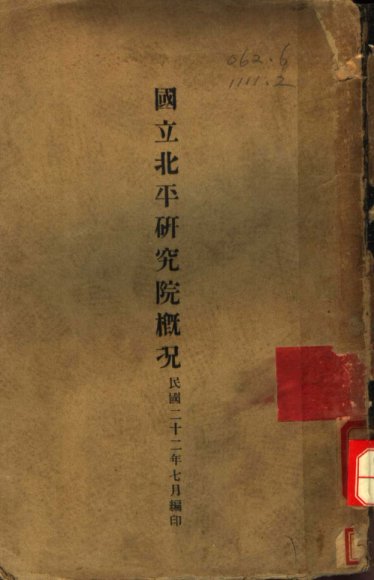 062.6
1111.2
國立北平研究院概况
民國二十二年七月編印